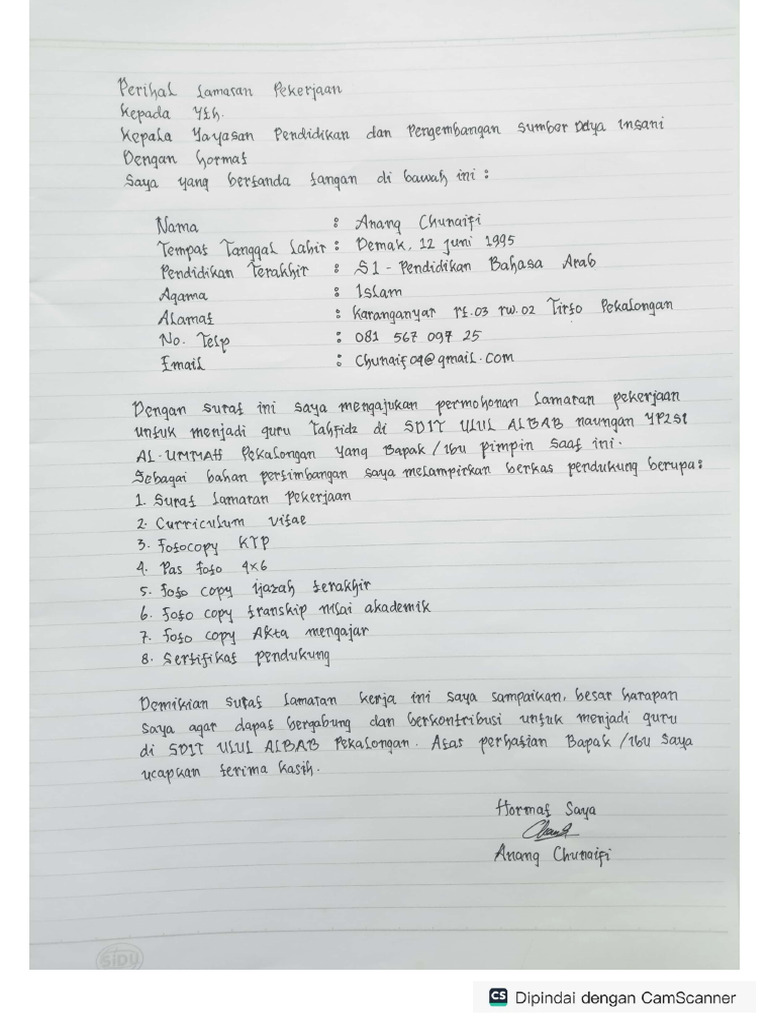 Perihal Lamaran Pekerjaan
Kepada Yth.
Kepala Yayasan Pendidikan dan Pengembangan Sumber Daya Insani
Dengan hormat
Saya yang bertanda tangan di bawah ini :
Nama : Anang Chunaifi
Tempat Tanggal Lahir : Demak, 12 Juni 1995
Pendidikan Terakhir : S1 - Pendidikan Bahasa Arab
Agama : Islam
Alamat : Karanganyar rt.03 rw.02 Tirto Pekalongan
No. Telp : 081 567 097 25
Email : Chunaif09@gmail.com
Dengan surat ini saya mengajukan permohonan lamaran pekerjaan
untuk menjadi guru Tahfidz di SDIT ULUL ALBAB naungan YP2SI
AL-UMMAH Pekalongan yang Bapak/Ibu pimpin saat ini.
Sebagai bahan pertimbangan saya melampirkan berkas pendukung berupa:
1. Surat lamaran Pekerjaan
2. Curriculum vitae
3. Fotocopy KTP
4. Pas foto 4x6
5. foto copy ijazah terakhir
6. Foto copy transkip nilai akademik
7. Foto copy Akta mengajar
8. Sertifikat pendukung
Demikian surat lamaran kerja ini saya sampaikan, besar harapan
saya agar dapat bergabung dan berkontribusi untuk menjadi guru
di SDIT ULUL ALBAB Pekalongan. Atas perhatian Bapak/Ibu saya
ucapkan terima kasih.
Hormat Saya
Anang Chunaifi
SiDU
CS Dipindai dengan CamScanner